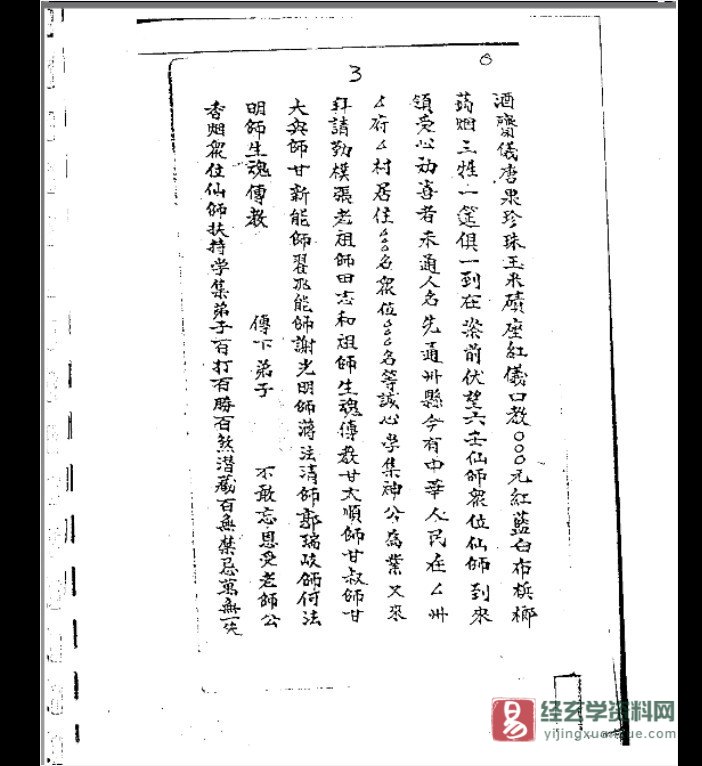 3
酒齋儀唐果珍珠玉米磧座紅儀口教〇〇〇元紅藍白布梹榔
蒟烟三牲一筵俱一到在梁前伏望六壬仙師眾位仙師到來
領受心劝喜者未通人名先通卅縣今有中華人民在厶卅
厶府厶村居住厶厶厶名眾位厶厶厶名等誠心學集神公為業又來
拜請勤樸張老祖師田志和祖師生魂傳教甘大順師甘叔師甘
大兴師甘新能師翟兆能師謝光明師蔣法清師郭瑞岐師何法
明師生魂傳教 傳下弟子 不敢忘恩受老師公
香烟眾位仙師扶持学集弟子百打百勝百煞潜藏百無禁忌萬無一失
易 经玄学资料网
yijingxuanxue.com